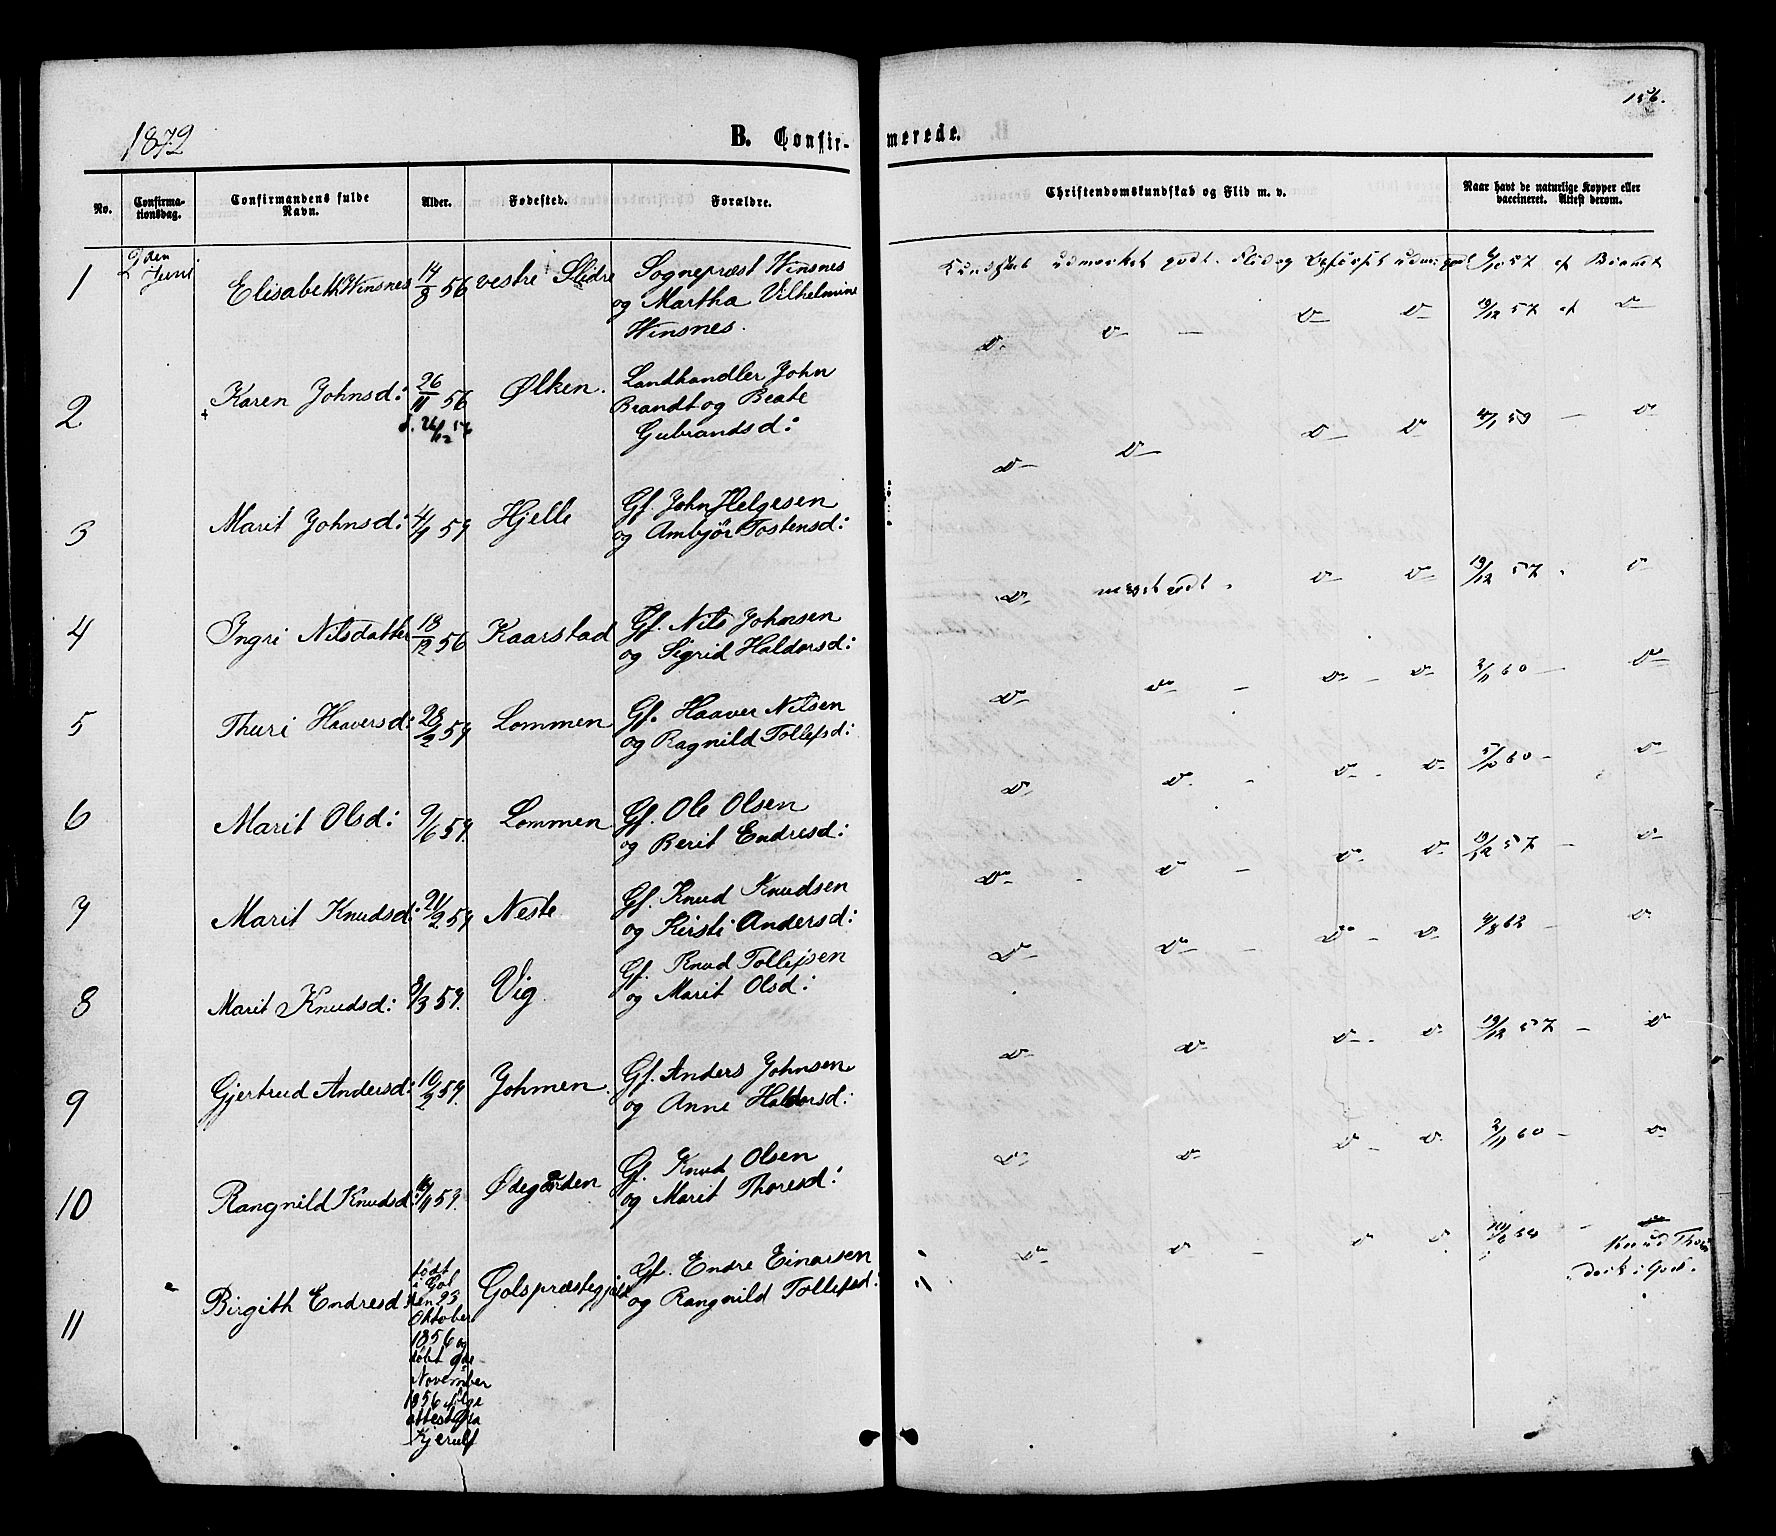 156.
1872
B. Confir-
merede.
No.
Confirma-
tionsdag.
Confirmandens fulde
Navn.
Alder.
Fødested.
Forældre.
Christendomskundskab og Flid m. v.
Naar havt de naturlige Kopper eller
vaccineret. Attest derom.
1
2den
Juni
Elisabeth Winsnes
14/8 56
vestre Slidre
Sognepræst Winsnes
og Martha Vilhelmine
Winsnes.
Kundskab udmerket godt. Flid og Opførsel
57 af Brandt
2
Karen Johnsd:
26/11 56
d. 26/12 56
Ølken.
Landhandler John
Brandt og Beate
Gubrandsd:
D D D D 19/12 57 af D
3
Marit Johnsd:
Hjelle
Gf. John Helgesen
og Ambjør Tostensd:
D D D D 59 D
4
Ingri Nilsdatter
18/12 56
Kaarstad
Gf. Nils Johnsen
og Sigrid Haldorsd:
D meget godt. D D 19/12 57 D
5
Thuri Haaversd:
28/2 57
Lommen
Gf. Haaver Nilsen
og Ragnild Tollefsd:
D D D D 2/11 60 D
6
Marit Olsd:
9/6 57.
Lommen
Gf. Ole Olsen
og Berit Endresd:
D D D D 5/10 60 D
7
Marit Knudsd:
21/2 57
Neste
Gf. Knud Knudsen
og Kirsti Andersd:
D D D D 19/12 57 D
8
Marit Knudsd:
8/3 57.
Vig
Gf. Knud Tollefsen
og Marit Olsd:
D D D D 9/8 62 D
9
Gjertrud Andersd:
10/2 57.
Johmen.
Gf. Anders Johnsen
og Anne Haldorsd:
D D D D 19/12 57 D
10
Rangnild Knudsd:
57.
Ødegården
Gf. Knud Olsen
og Marit Thoresd:
D D D D 2/11 60 D
11
Birgith Endresd:
født
i Gol
den 23
Oktober
1856 og
døbt 9de
November
1856 ifølge
attest fra
Kjerulf
Golspræstegjeld
Gf. Endre Einarsen
og Rangnild Tollefsd:
D D D D 64
Knud